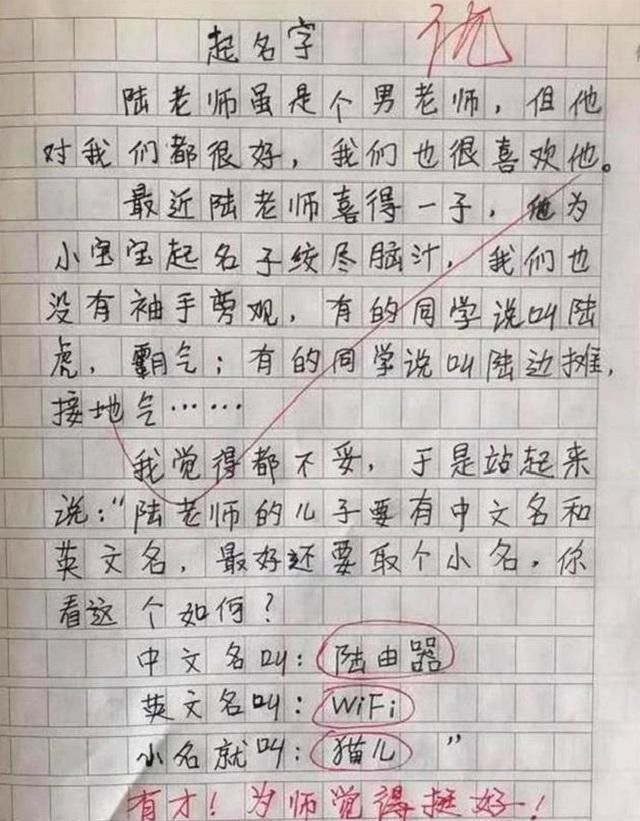 起名字
优
陆老师虽是个男老师，但他
对我们都很好，我们也很喜欢他。
最近陆老师喜得一子，他为
小宝宝起名子绞尽脑汁，我们也
没有袖手旁观，有的同学说叫陆
虎，霸气；有的同学说叫陆边摊，
接地气……
我觉得都不妥，于是站起来
说：“陆老师的儿子要有中文名和
英文名，最好还要取个小名，你
看这个如何？
中文名叫：陆由器
英文名叫：WiFi
小名就叫：猫儿”
有才！为师觉得挺好！